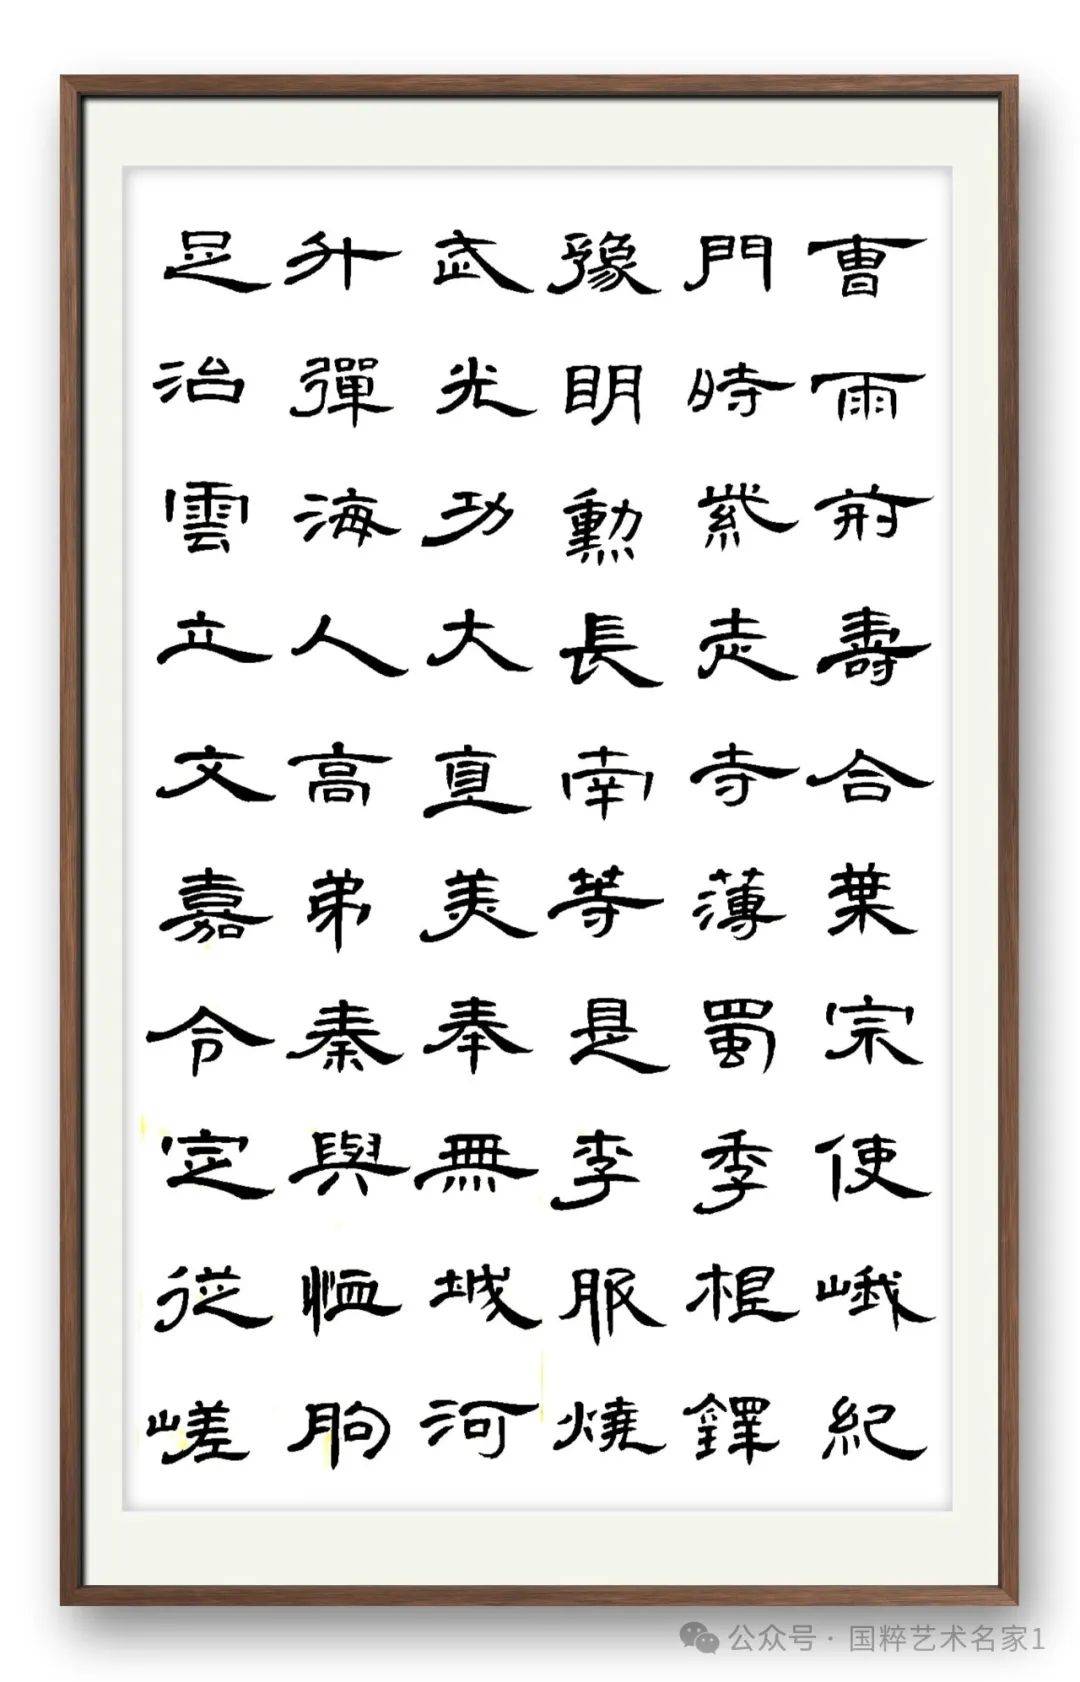 曹雨前壽合葉宗使峨紀
門時紫走寺薄蜀季根鐸
豫明勳長南等是李服燒
武光功大直美奉無城河
升彈海人高弟秦與恤朐
足治雲立文嘉令定從嵯
公众号 · 国粹艺术名家1